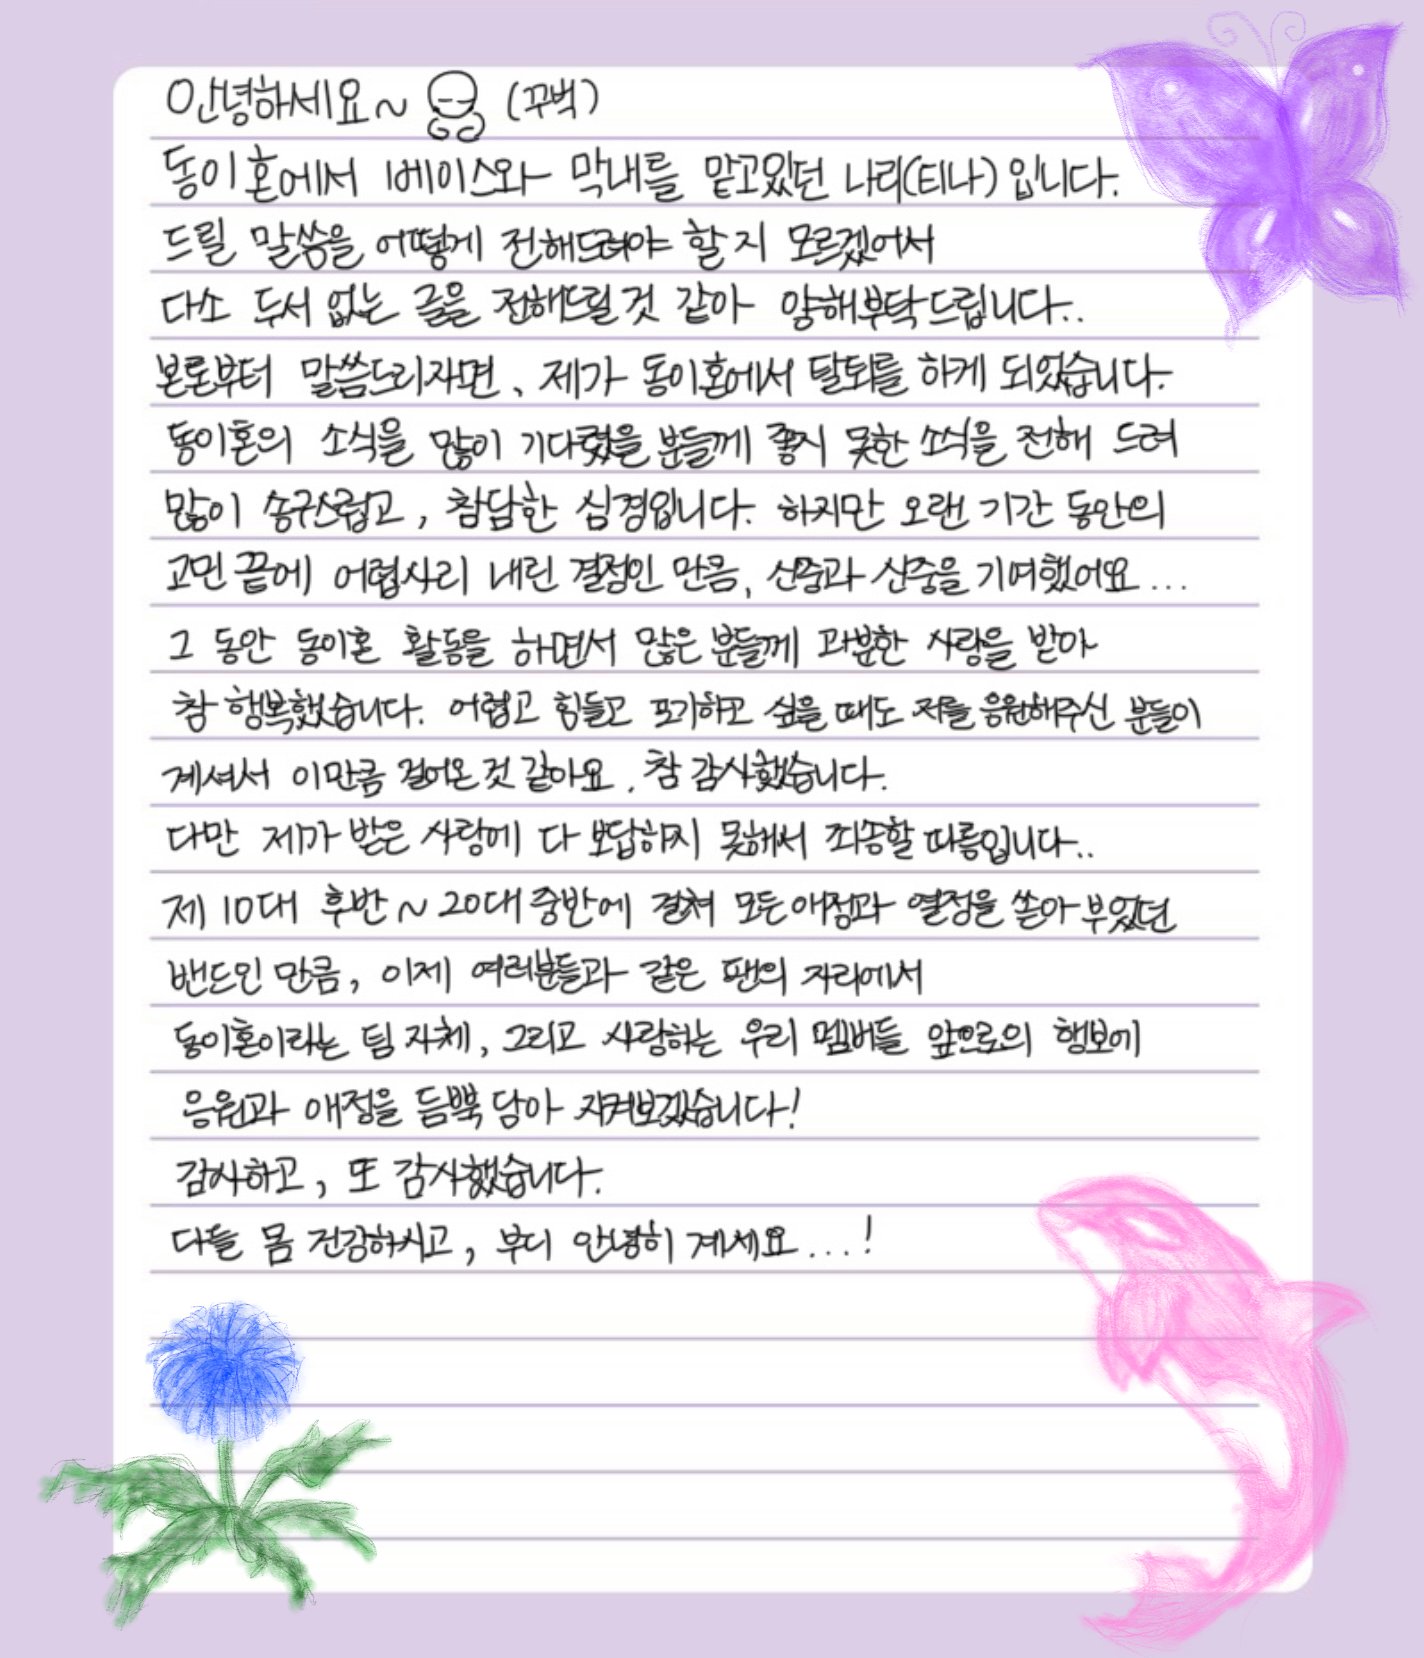 안녕하세요~ (꾸벅)
동이혼에서 베이스와 막내를 맡고있던 나리(티나)입니다.
드릴 말씀을 어떻게 전해드려야 할지 모르겠어서
다소 두서 없는 글을 전해드릴 것 같아 양해부탁드립니다..
본론부터 말씀드리자면, 제가 동이혼에서 탈퇴를 하게 되었습니다.
동이혼의 소식을 많이 기다렸을 분들께 좋지 못한 소식을 전해 드려
많이 송구스럽고, 참담한 심경입니다. 하지만 오랜 기간 동안의
고민 끝에 어렵사리 내린 결정인 만큼, 신중과 신중을 기여했어요...
그 동안 동이혼 활동을 하면서 많은 분들께 과분한 사랑을 받아
참 행복했습니다. 어렵고 힘들고 포기하고 싶을 때도 저를 응원해주신 분들이
계셔서 이만큼 걸어온 것 같아요. 참 감사했습니다.
다만 제가 받은 사랑에 다 보답하지 못해서 죄송할 따름입니다..
제 10대 후반~20대 중반에 걸쳐 모든 애정과 열정을 쏟아 부었던
밴드인 만큼, 이제 여러분들과 같은 팬의 자리에서
동이혼이라는 팀 자체, 그리고 사랑하는 우리 멤버들 앞으로의 행보에
응원과 애정을 듬뿍 담아 지켜보겠습니다!
감사하고, 또 감사했습니다.
다들 몸 건강하시고, 부디 안녕히 계세요...!